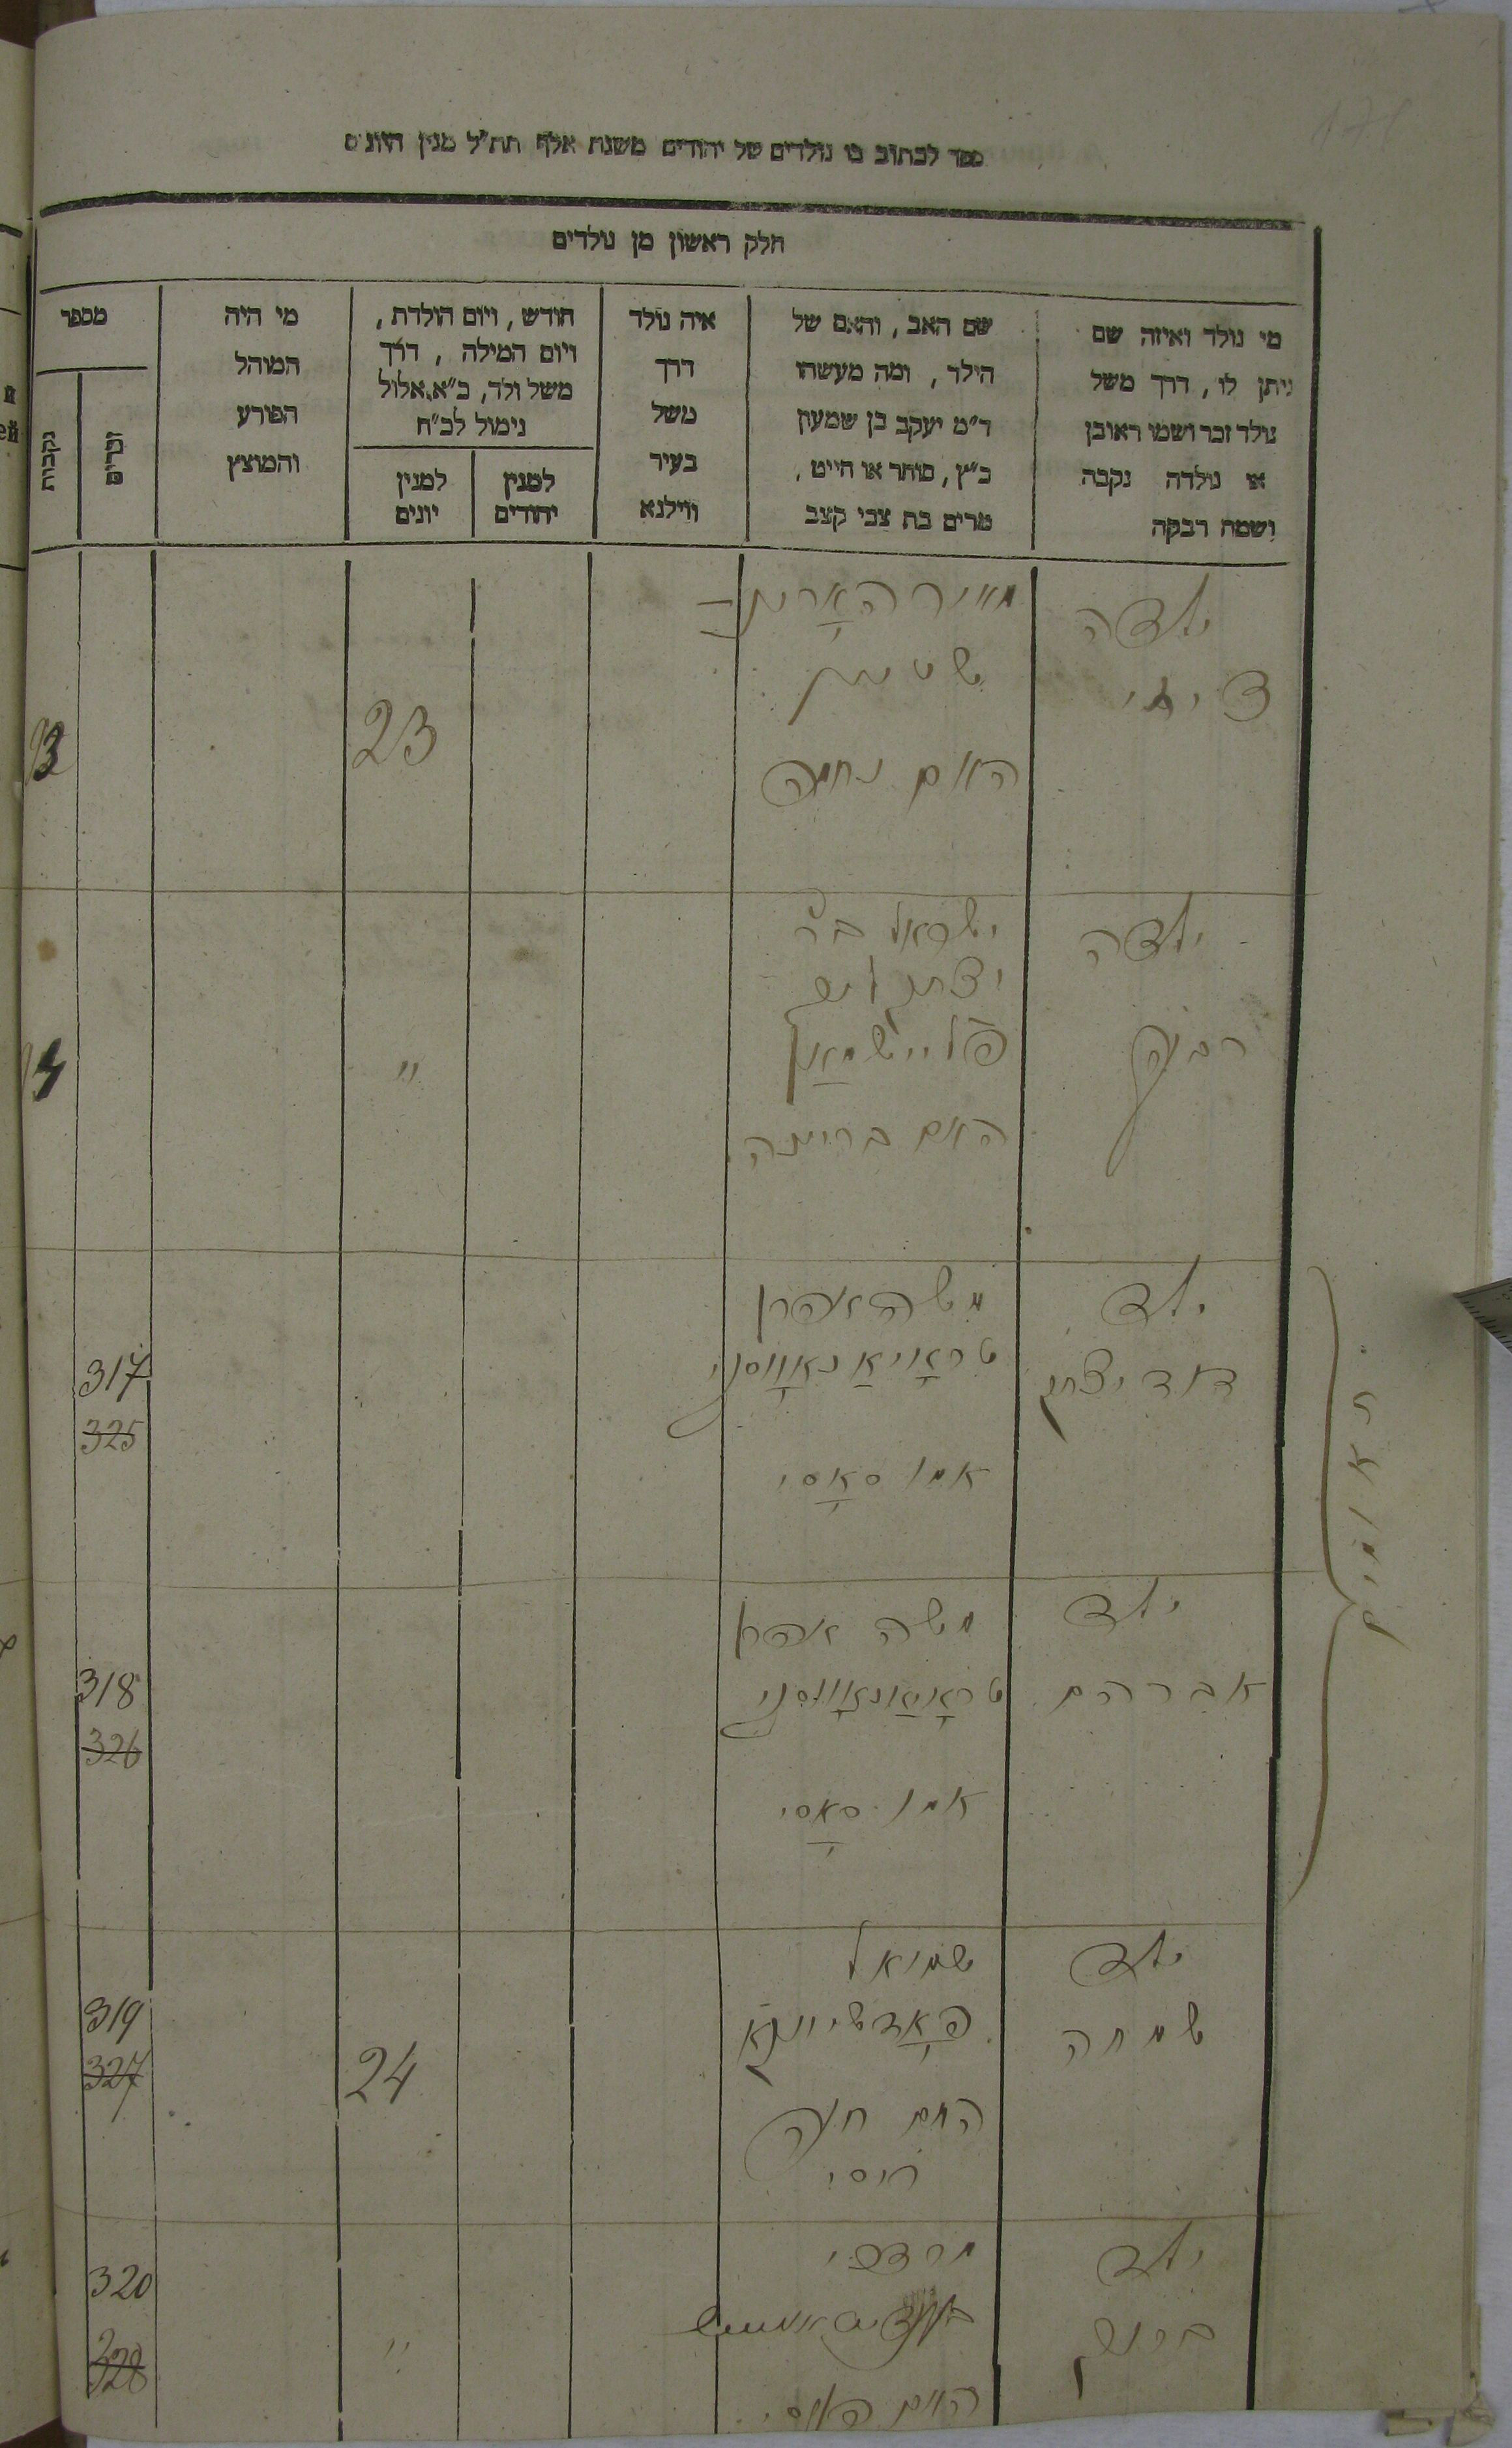 ספר לכתוב בו נולדים של יהודים משנת אלף תת"ל מנין היונים
חלק ראשון מן נולדים
מי נולד ואיזה שם
ניתן לו, דרך משל
נולד זכר ושמו ראובן
או נולדה נקבה
ושמה רבקה
שם האב, והאם של
הילד, ומה מעשהו
ד"מ יעקב בן שמעון
כ"ץ, סוחר או חייט,
מרים בת צבי קצב
איה נולד
דרך
משל
בעיר
ווילנא
חודש, ויום הולדת,
ויום המילה, דרך
משל ולד, כ"א אלול
נימול לכ"ח
למנין
יהודים
למנין
יונים
מי היה
המוהל
הפורע
והמוצץ
מספר
זכרים
נקבות
ילדה
מאיר
האם נחמה
23
ילדה
ישראל בר
יצחק
פליישמאן
האם
"
ילד
דוד יצחק
משה אהרן
טראיאנאווסקי
אמו סאסי
317
325
ילד
אברהם
משה אהרן
טראיאנאווסקי
אמו סאסי
318
326
תאומים
ילד
שמחה
שמואל
האם חנה
ריסי
24
319
327
ילד
ברוך
מרדכי
האם
"
320
328